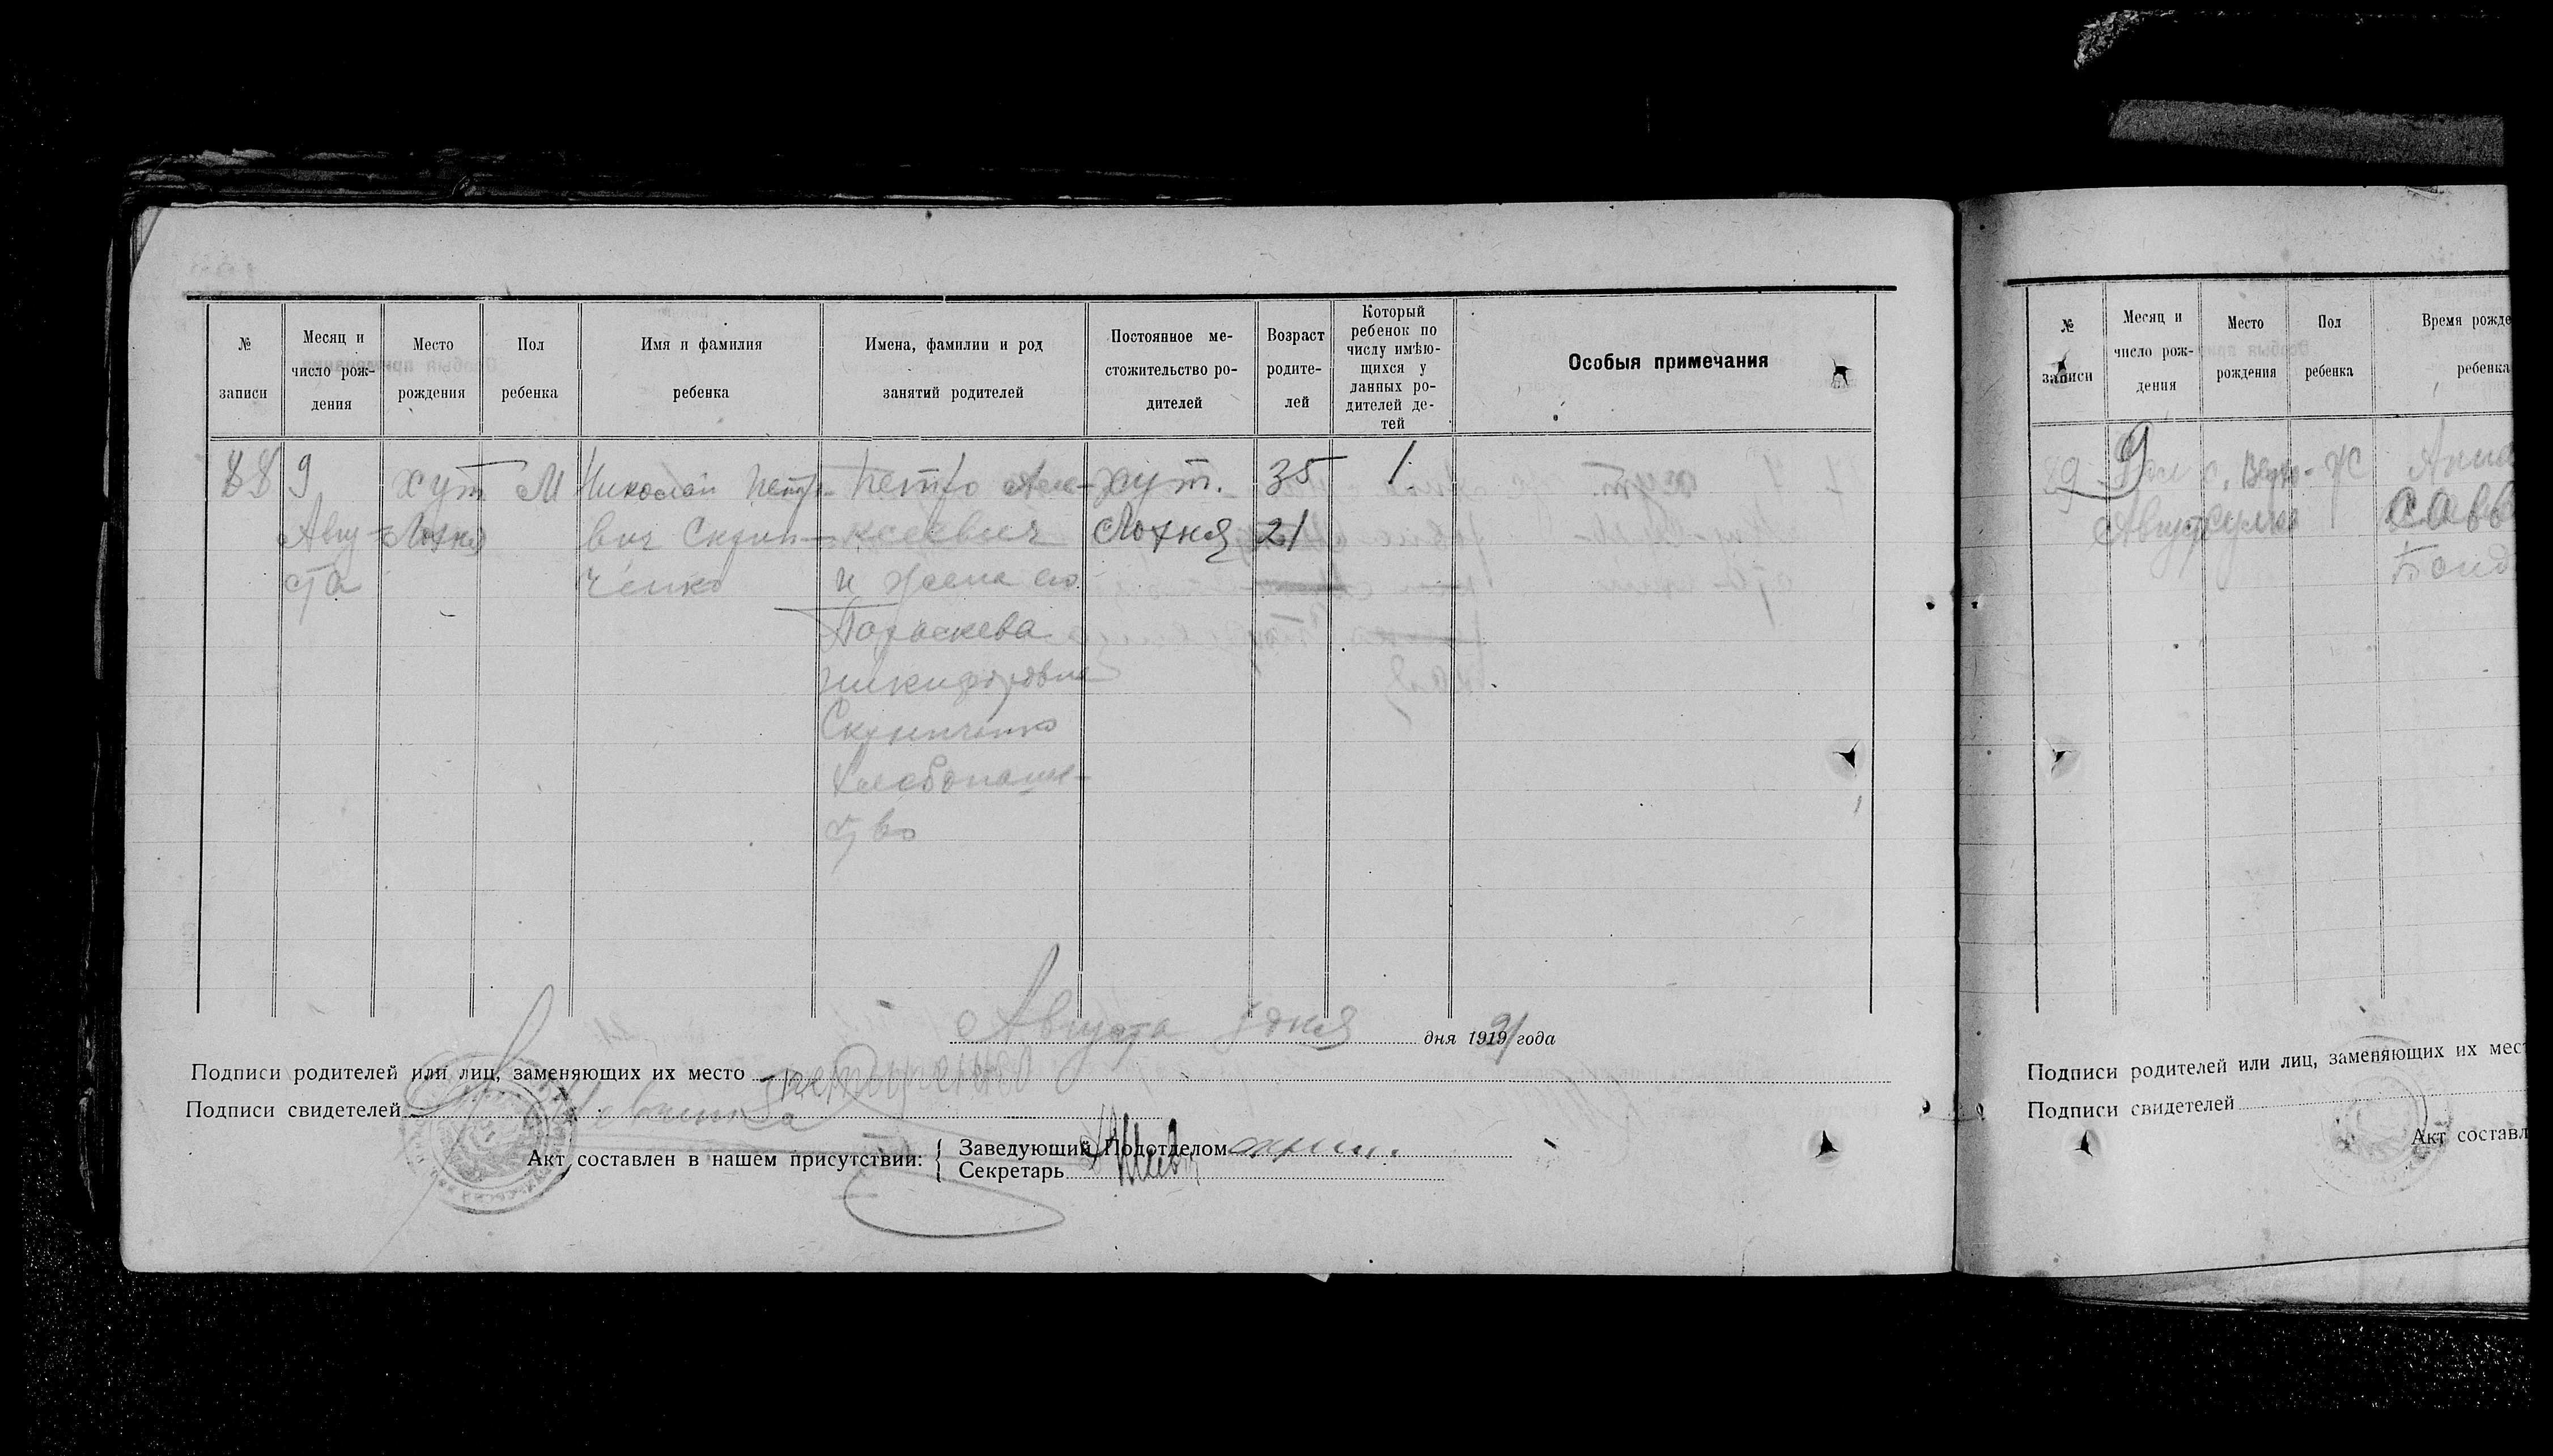 № записи
Месяц и число рождения
Место рождения
Пол ребенка
Имя и фамилия ребенка
Имена, фамилии и род занятий родителей
Постоянное ме-
стожительство ро-
дителей
Возраст
родите-
лей
Который
ребенок по
числу имѣю-
щихся у
данных ро-
дителей де-
тей
Особыя примечания
88
9
Авгу-
ста
хут
Лохня
М
Николай Петро-
вич Скрип-
ченко
Петро Але-
ксеевич
и жена его
Параскева
Никифоровна
Хлебопаше-
ство
хут.
Лохня
35
21
1
Августа
дня
дня 1919 21 года
Подписи родителей или лиц, заменяющих их место
Подписи свидетелей
Акт составлен в нашем присутствии:
Заведующий Подотделом
Секретарь
№
записи
Месяц и
число рож-
дения
Место
рождения
Пол
ребенка
Время рожде
ребенка
89
9
Август
Ж
Анна
Савв
Бонд
Подписи родителей или лиц, заменяющих их мес
Подписи свидетелей
Акт составл